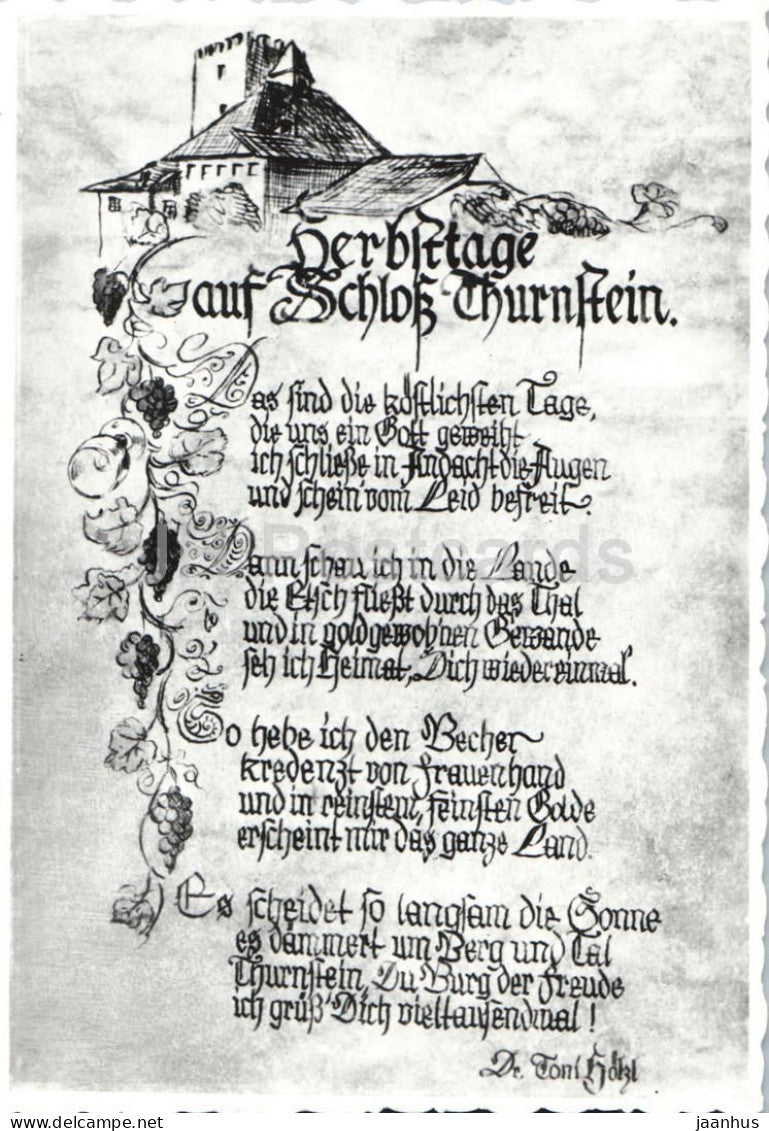 Herbsttage
auf Schloß Thurnstein.
Das sind die köstlichsten Tage,
die uns ein Gott geweiht
ich schließe in Andacht die Augen
und schein' vom Leid befreit.
Dann schau ich in die Lande
die Etsch fließt durch das Thal
und in goldgewob'nen Gewande
seh ich Heimat, Dich wiedereinmal.
So hebe ich den Becher
kredenzt von Frauenhand
und in reinstem, feinsten Golde
erscheint mir das ganze Land.
Es scheidet so langsam die Sonne
es dämmert um Berg und Tal
Thurnstein, Du Burg der Freude
ich grüß' Dich vieltausendmal!
Dr. Toni Hölzl
Postcards
www.delcampe.net
jaanhus